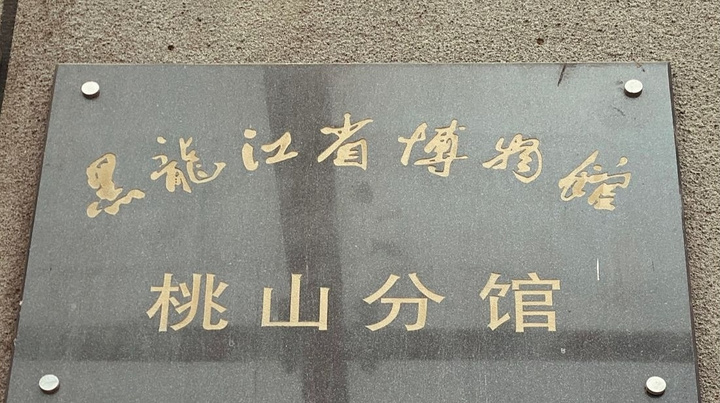 黑龍江省博物館
桃山分馆